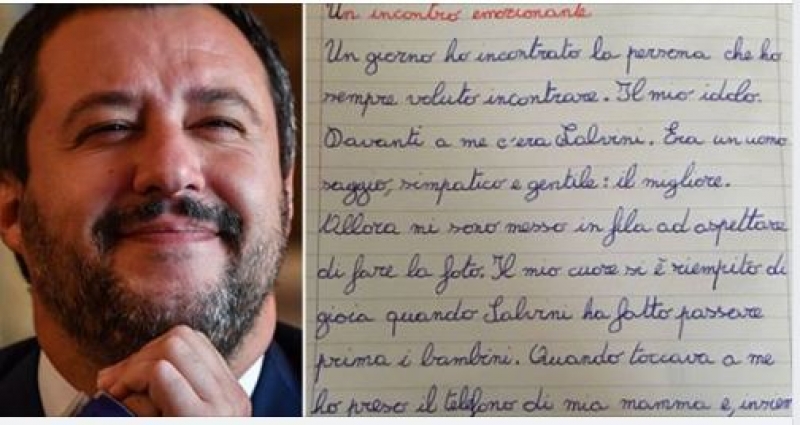 Un incontro emozionante
Un giorno ho incontrato la persona che ho
sempre voluto incontrare. Il mio idolo.
Davanti a me c'era Salvini. Era un uomo
saggio, simpatico e gentile: il migliore.
Allora mi sono messo in fila ad aspettare
di fare la foto. Il mio cuore si è riempito di
gioia quando Salvini ha fatto passare
prima i bambini. Quando toccava a me
ho preso il telefono di mia mamma e, insiem